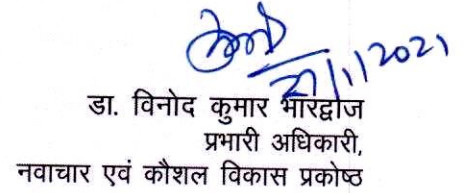 27/1/2021
डा. विनोद कुमार भारद्वाज
प्रभारी अधिकारी,
नवाचार एवं कौशल विकास प्रकोष्ठ